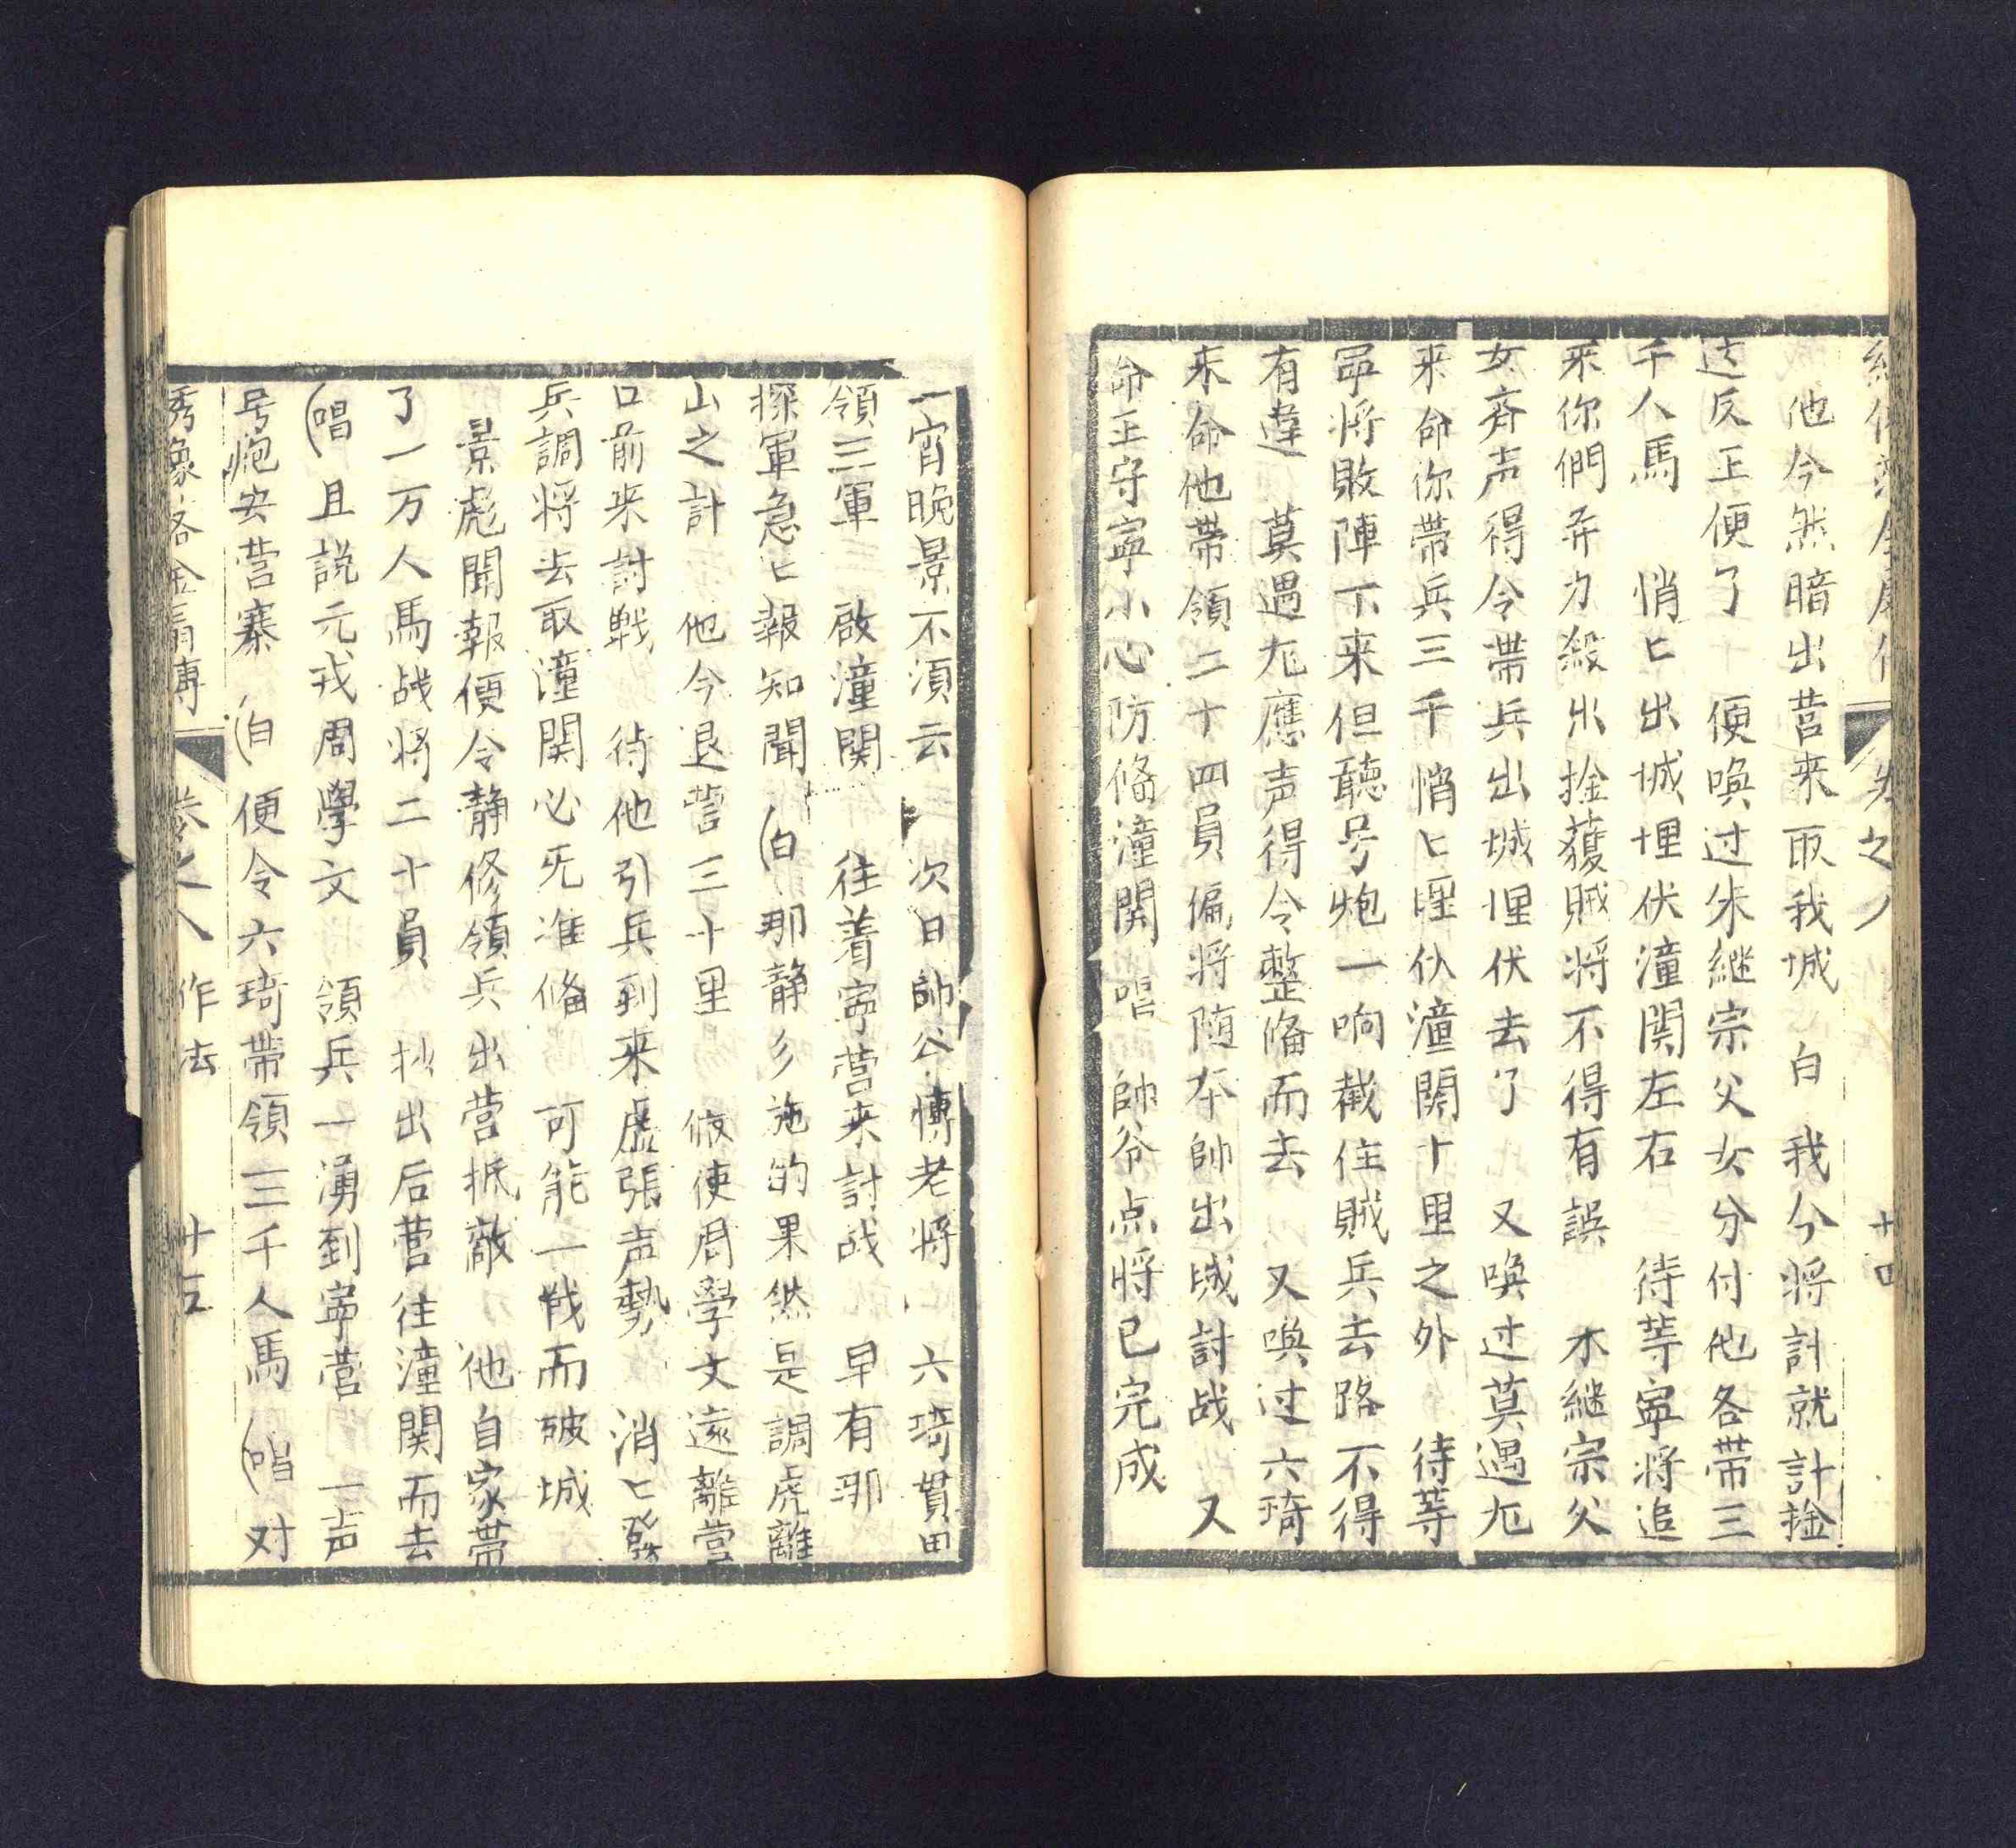 卷之八 十四
他今然暗出营来取我城 白 我今将計就計捡
这反王便了 便喚过朱継宗父女分付他各带三
千人馬 悄匕出城埋伏潼関左右 待等寧将追
来你們弃力殺出捡獲賊将不得有誤 木継宗父
女斉声得令带兵出城埋伏去了 又喚过莫遇尤
来命你带兵三千悄匕埋伏潼関十里之外 待等
寧将敗陣下来但聴号炮一响截住賊兵去路不得
有違 莫遇尤應声得令整俻而去 又喚过六琦
来命他带領二十四員偏将随本帥出城討战 又
命王守寧小心防俻潼関 唱 帥爷点将已完成
一宵晚景不須云 次日帥公慱老将 六琦貫田
領三軍 啟潼関 往着寧营来討战 早有那
探軍急匕報知聞 (白 那静乡施的果然是調虎離
山之計 他今退营三十里 俻使周學文遠離营
口前来討戰 待他引兵到来虚張声勢 消匕發
兵調将去取潼関必旡准俻 可能一战而破城
景彪聞報便令静修領兵出营抵敵 他自家带
了一万人馬战将二十員 抄出后营往潼関而去
(唱 且説元戎周學文 領兵一湧到寧营 一声
号炮安营寨 (白 便令六琦带領三千人馬 (唱 对
綉像洛金扇傳 卷之八 作法 十五